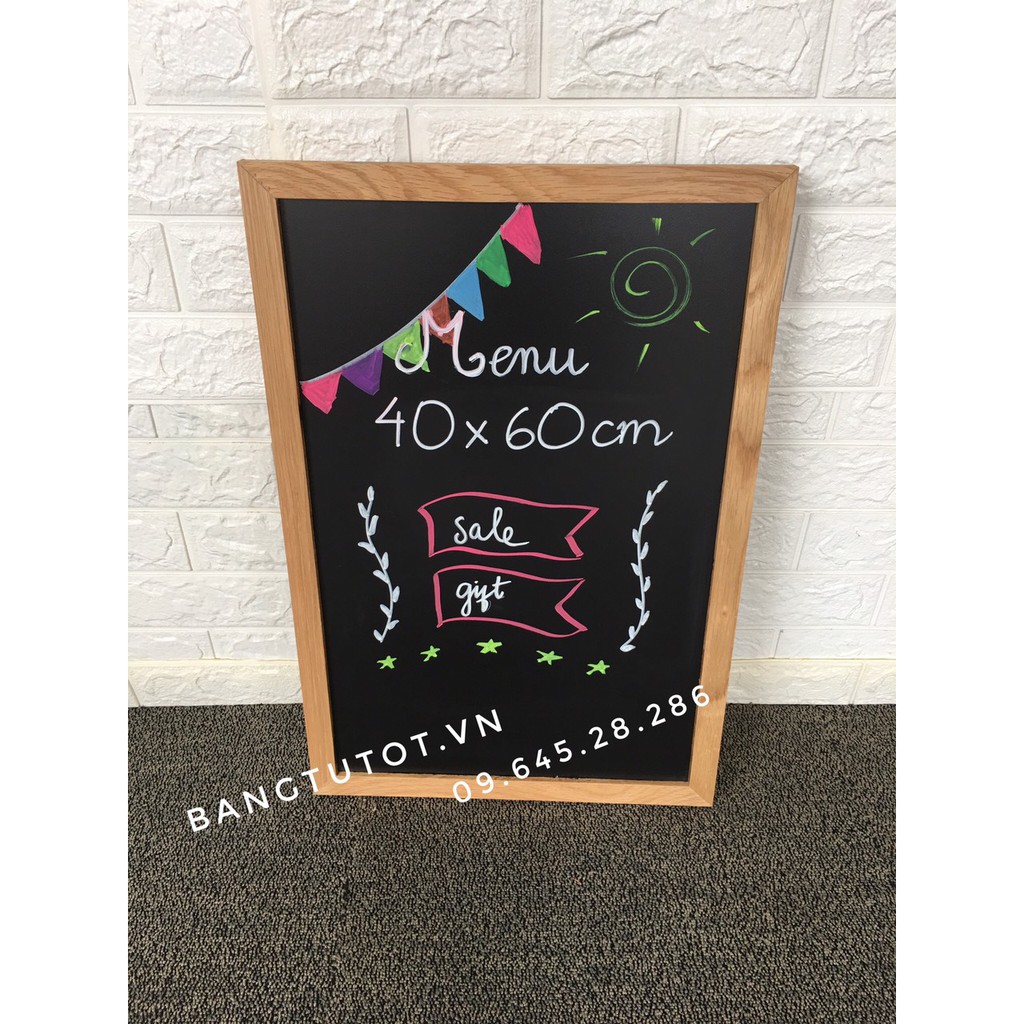 Menu
40 x 60 cm
sale
gift
BANGTUTOT.VN
09.645.28.286